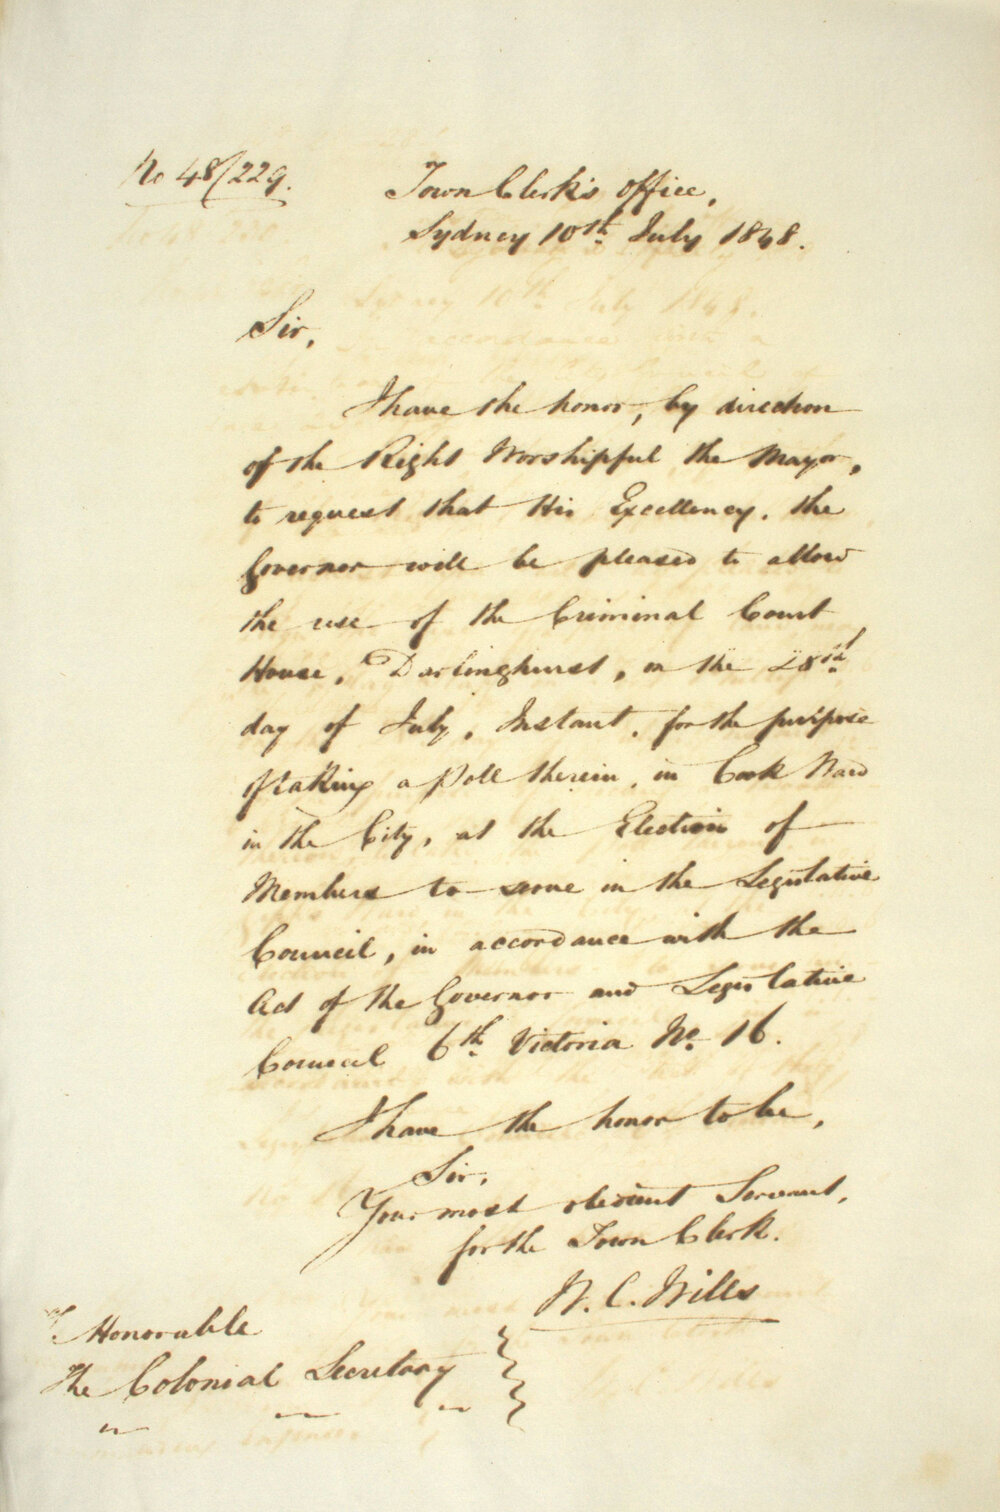 No 48/229.
Town Clerk's office,
Sydney 10th July 1848.
Sir,
I have the honor, by direction
of the Right Worshipful the Mayor,
to request that His Excellency, the
Governor will be pleased to allow
the use of the Criminal Court
House, Darlinghurst, on the 28th
day of July, Instant, for the purpose
of taking a Poll therein, in Cook Ward
in the City, at the Election of
Members to serve in the Legislative
Council, in accordance with the
Act of the Governor and Legislative
Council 6th Victoria No. 16.
I have the honor to be,
Sir,
Your most obedient Servant,
for the Town Clerk.
W. C. Wills
Honorable
The Colonial Secretary